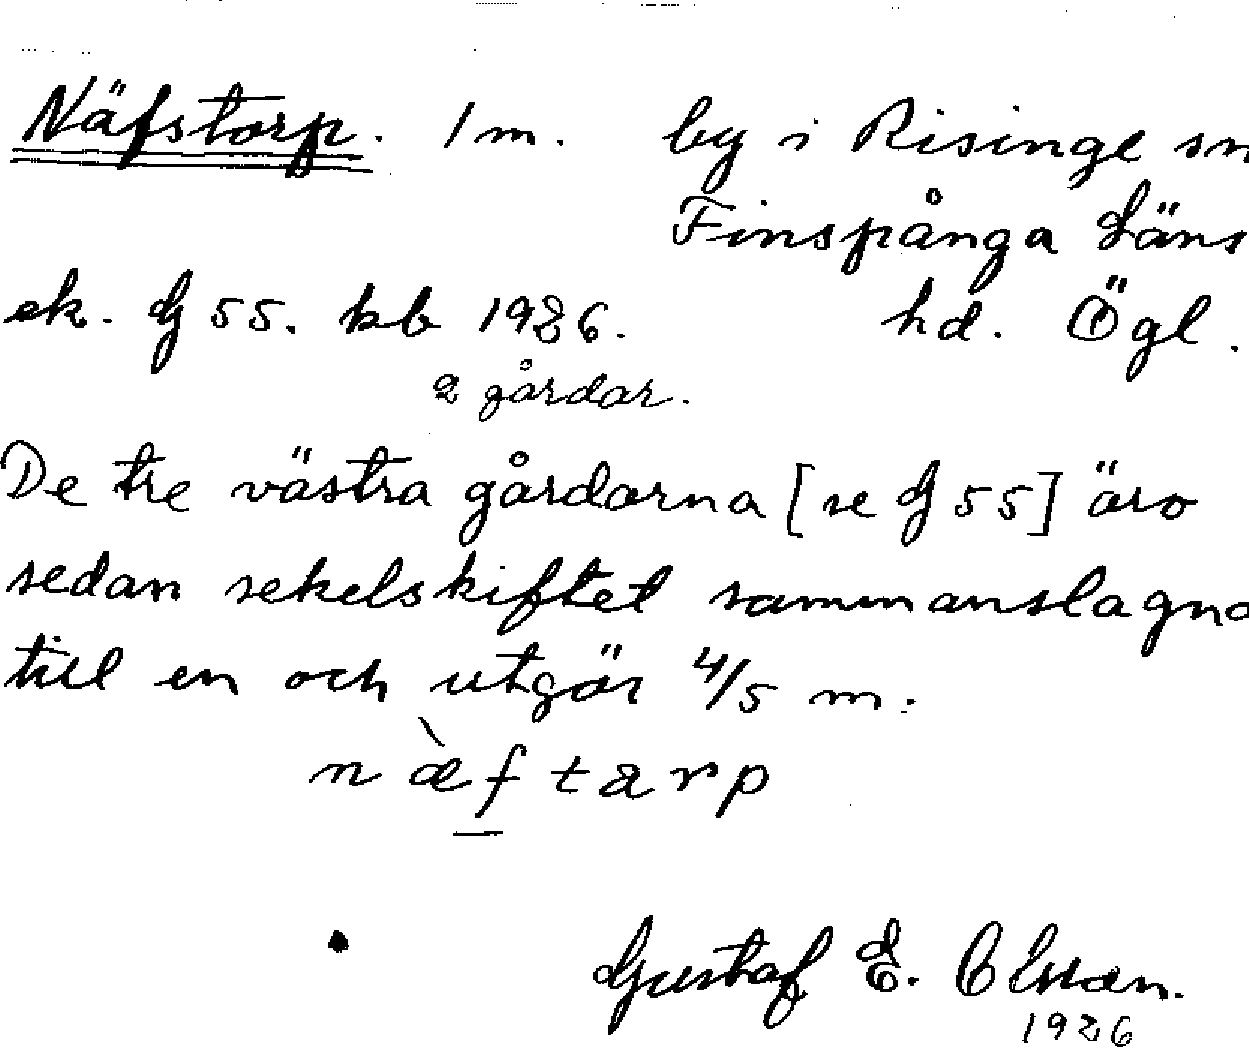 Näfstorp. 1 m. by i Risinge sn
Finspånga Läns
ek. dj 55. kb 1926. hd. Ögl.
2 gårdar.
De tre västra gårdarna [se dj 55] äro
sedan sekelskiftet sammanslagna
till en och utgör 4/5 m.
næ̀ftarp
Gustaf E. Olsson.
1926